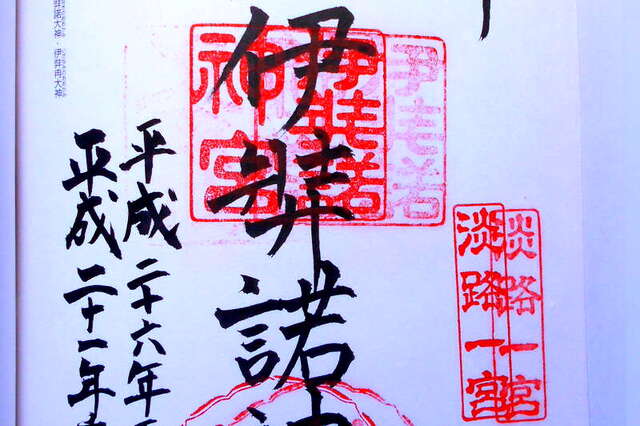 淡路一宮
淡路一宮
伊弉諾
伊弉諾
神宮
伊弉諾
平成二十六年
平成二十一年
弉諾大神・伊弉冉大神